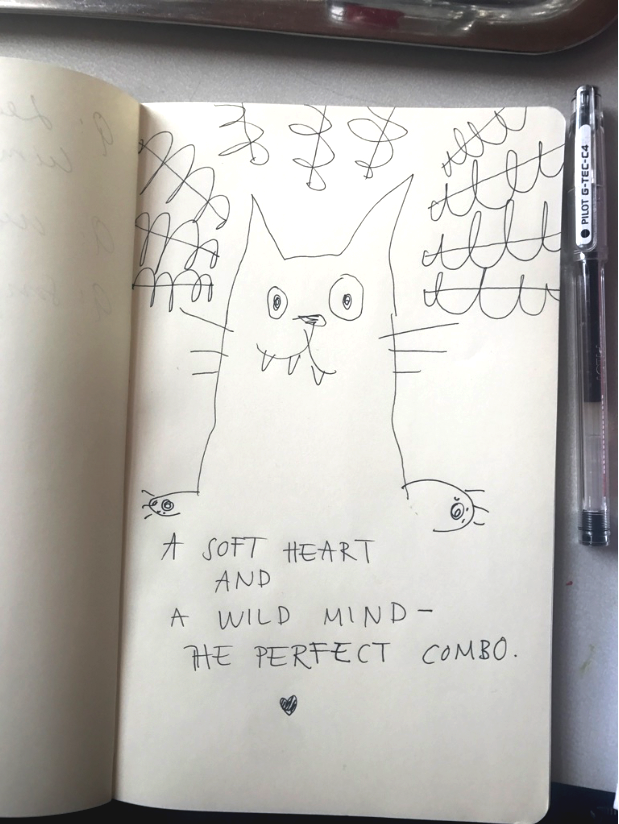 A SOFT HEART
AND
A WILD MIND-
THE PERFECT COMBO.
PILOT G-TEC-C4